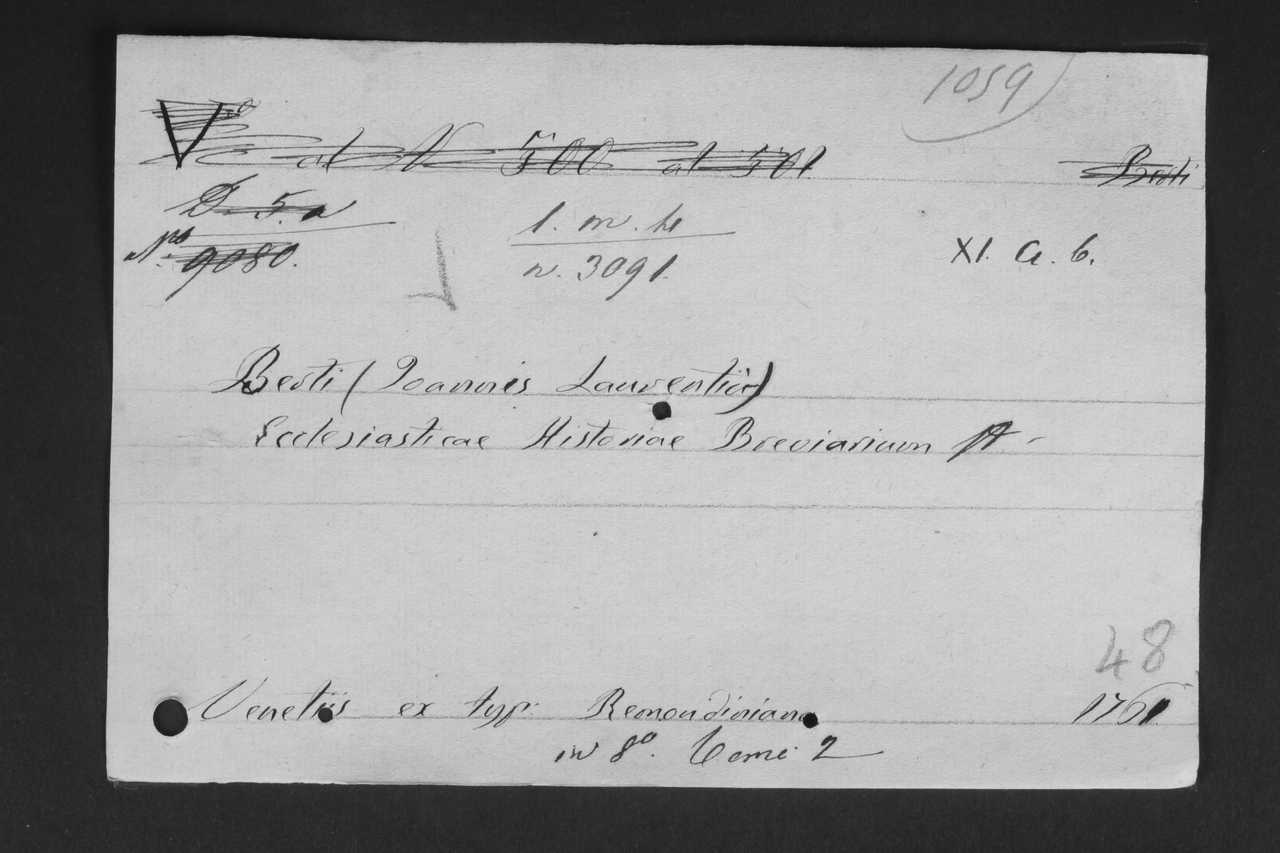 1059
al N 500 al 501
Berti
D. 5. a
N.ro 9080.
1. m. h
n. 3091.
XI. a. 6.
Berti (Joannis Laurentii)
Ecclesiasticae Historiae Breviarium
48
Venetiis ex typ: Remondiniana
1761
in 8º. Tomi 2